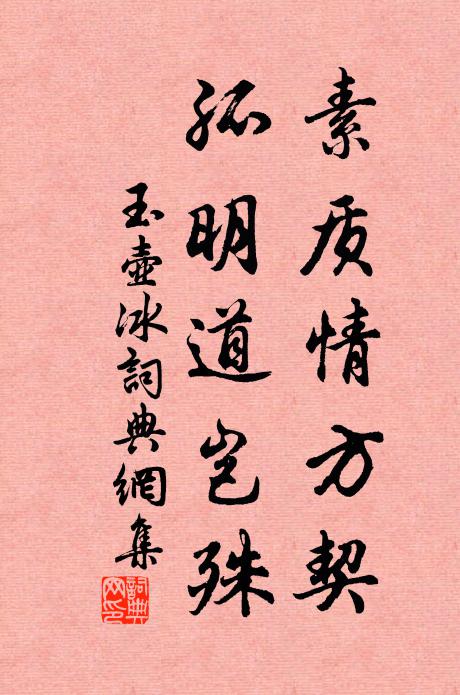 素质情方契
孤明道岂殊
玉壶冰詞典網集
詞典
网印